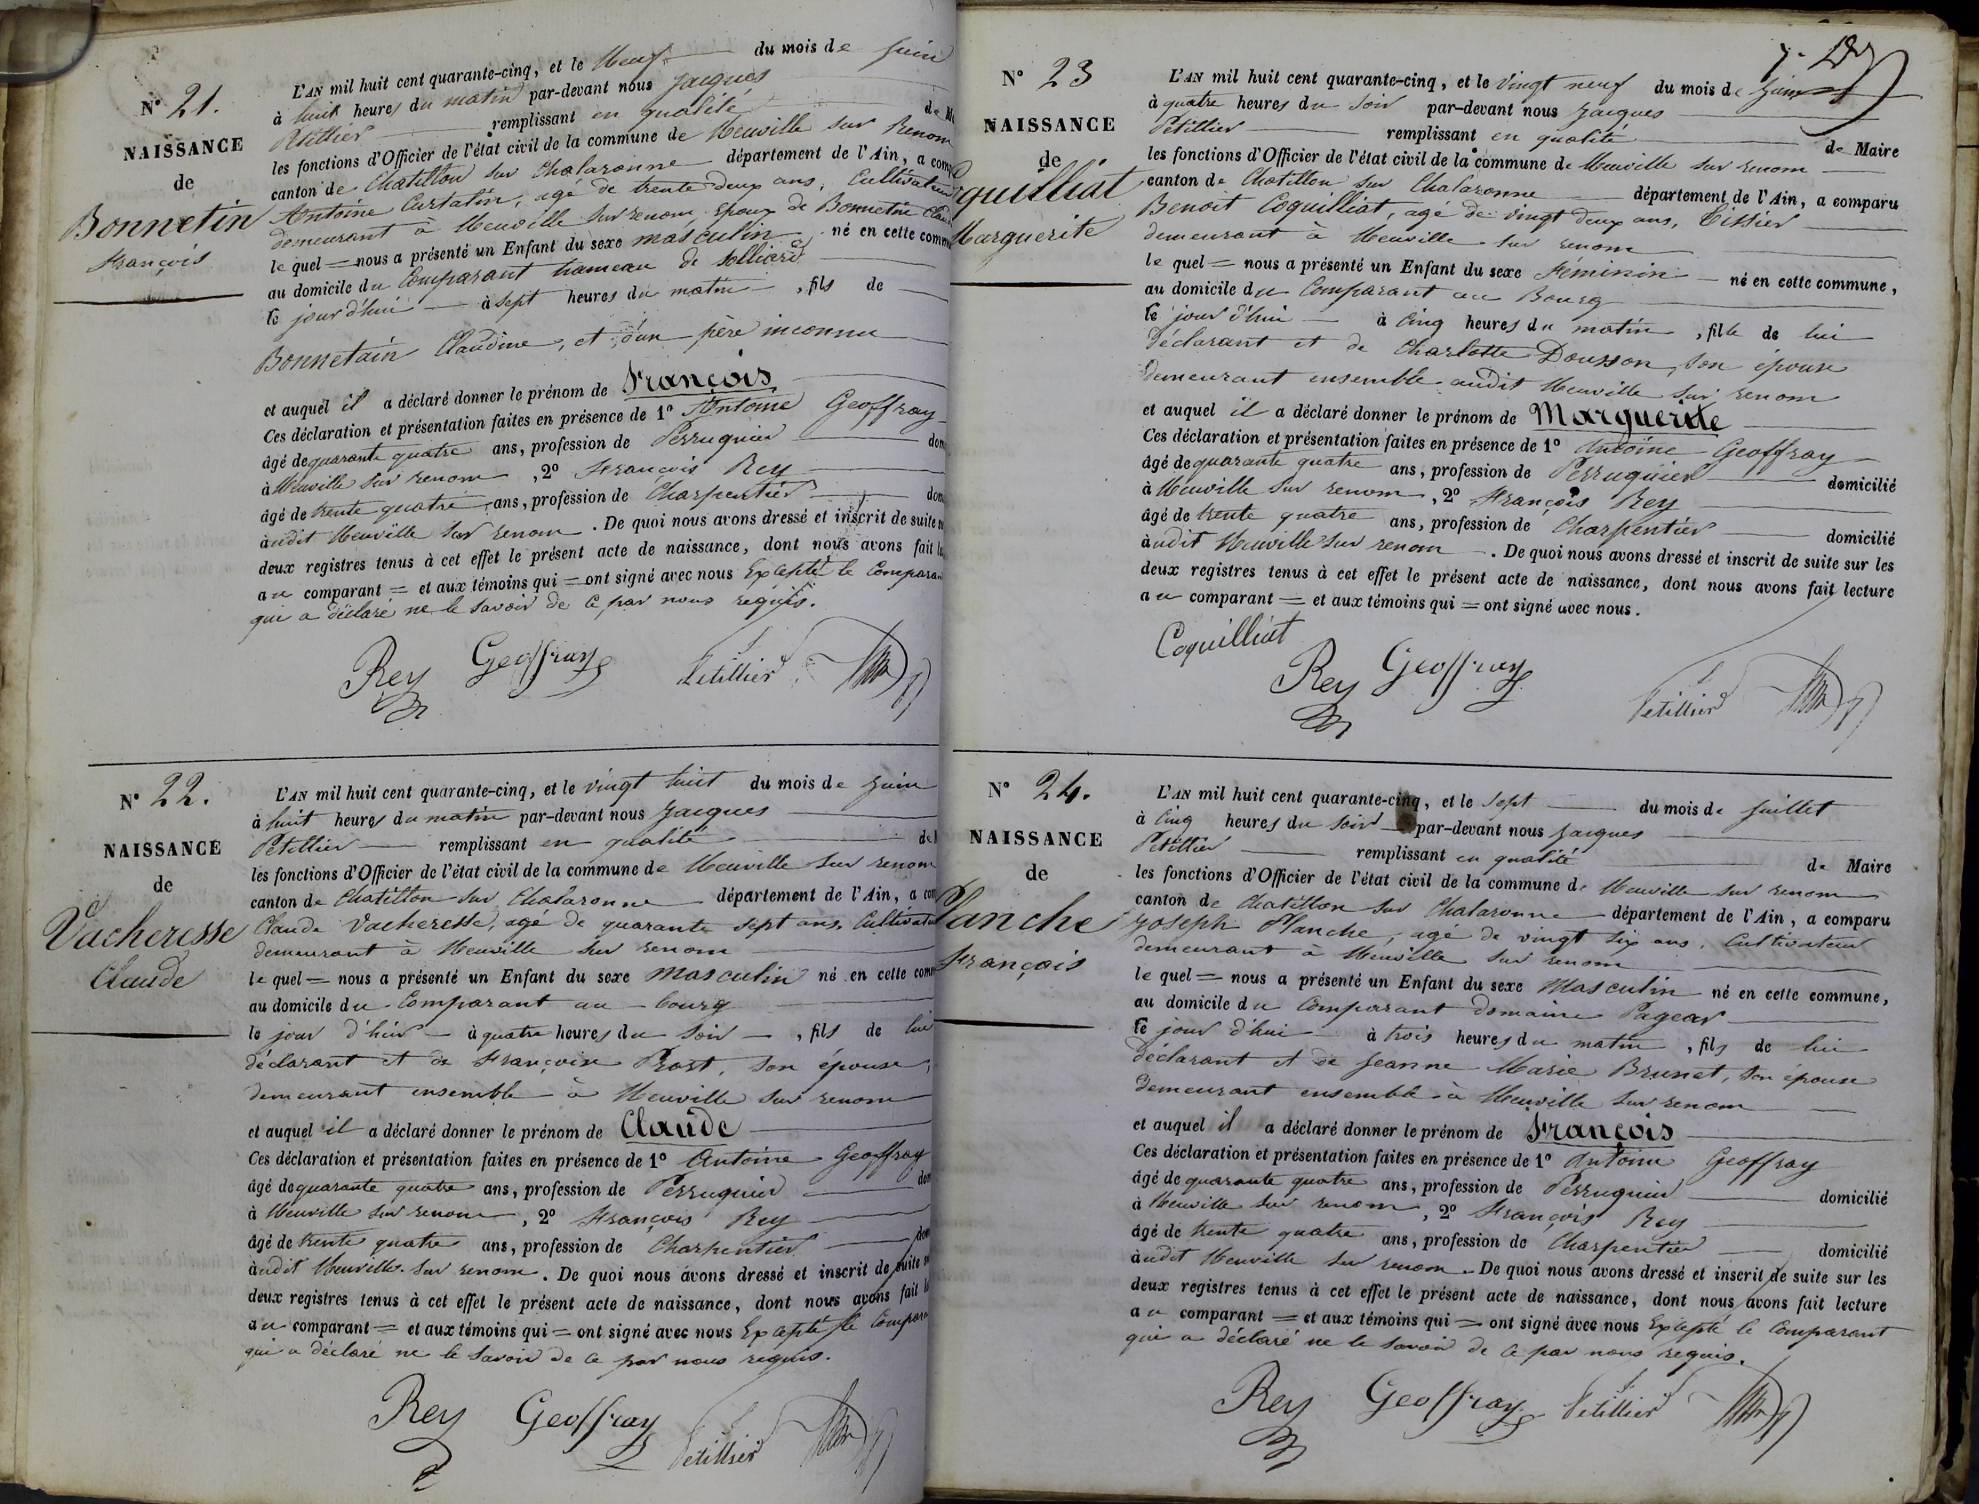 N° 21.
NAISSANCE
de
Bonnetin
François
L'AN mil huit cent quarante-cinq, et le Neuf du mois de Juin
à huit heures du matin par-devant nous Jacques
Petillier remplissant en qualité de M
les fonctions d'Officier de l'état civil de la commune de Neuville sur Renom
canton de Chatillon sur Chalaronne département de l'Ain, a comp
Antoine Curtatin, agé de trente deux ans, Cultivateur
demeurant à Neuville sur renom epoux de Bonnetin Claud
le quel = nous a présenté un Enfant du sexe masculin né en cette commu
au domicile du Comparant hameau de
le jour d'hui à sept heures du matin, fils de
Bonnetain Claudine, et d'un père inconnu
et auquel il a déclaré donner le prénom de François
Ces déclaration et présentation faites en présence de 1° Antoine Geoffray
âgé de quarante quatre ans, profession de Perruquier dom
à Neuville sur renom, 2° François Rey
âgé de trente quatre ans, profession de Charpentier dom
à udit Neuville sur renom. De quoi nous avons dressé et inscrit de suite su
deux registres tenus à cet effet le présent acte de naissance, dont nous avons fait le
au comparant = et aux témoins qui = ont signé avec nous Excepté le Comparan
qui a déclaré ne le savoir de ce par nous requis.
Rey Geoffray Petillier
N° 22.
NAISSANCE
de
Vacheresse
Claude
L'AN mil huit cent quarante-cinq, et le vingt huit du mois de Juin
à huit heures du matin par-devant nous Jacques
Petillier remplissant en qualité de M
les fonctions d'Officier de l'état civil de la commune de Neuville sur renom
canton de Chatillon sur Chalaronne département de l'Ain, a com
Claude Vacheresse, agé de quarante sept ans, Cultivateu
demeurant à Neuville sur renom
le quel = nous a présenté un Enfant du sexe masculin né en cette comm
au domicile du Comparant au bourg
le jour d'hui à quatre heures du soir, fils de lui
déclarant et de Françoise Prost, son épouse,
demeurant ensemble à Neuville sur renom
et auquel il a déclaré donner le prénom de Claude
Ces déclaration et présentation faites en présence de 1° Antoine Geoffray
âgé de quarante quatre ans, profession de Perruquier dom
à Neuville sur renom, 2° François Rey
âgé de trente quatre ans, profession de Charpentier dom
à udit Neuville sur renom. De quoi nous avons dressé et inscrit de suite su
deux registres tenus à cet effet le présent acte de naissance, dont nous avons fait le
au comparant = et aux témoins qui = ont signé avec nous Excepté le Compara
qui a déclaré ne le savoir de ce par nous requis.
Rey Geoffray Petillier
N° 23
NAISSANCE
de
oquilliat
Marguerite
L'AN mil huit cent quarante-cinq, et le vingt neuf du mois de Juin
à quatre heures du soir par-devant nous Jacques
Petillier remplissant en qualité de Maire
les fonctions d'Officier de l'état civil de la commune de Neuville sur renom
canton de Chatillon sur Chalaronne département de l'Ain, a comparu
Benoit Coquilliat, agé de vingt deux ans, Tissier
demeurant à Neuville sur renom
le quel = nous a présenté un Enfant du sexe féminin né en cette commune,
au domicile du Comparant au Bourg
le jour d'hui à cinq heures du matin, fille de lui
déclarant et de Charlotte Dousson, son épouse
demeurant ensemble audit Neuville sur renom
et auquel il a déclaré donner le prénom de Marguerite
Ces déclaration et présentation faites en présence de 1° Antoine Geoffray
âgé de quarante quatre ans, profession de Perruquier domicilié
à Neuville sur renom, 2° François Rey
âgé de trente quatre ans, profession de Charpentier domicilié
à udit Neuville sur renom. De quoi nous avons dressé et inscrit de suite sur les
deux registres tenus à cet effet le présent acte de naissance, dont nous avons fait lecture
au comparant = et aux témoins qui = ont signé avec nous.
Coquilliat
Rey Geoffray Petillier
N° 24.
NAISSANCE
de
Planche
François
L'AN mil huit cent quarante-cinq, et le sept du mois de Juillet
à cinq heures du soir par-devant nous Jacques
Petillier remplissant en qualité de Maire
les fonctions d'Officier de l'état civil de la commune de Neuville sur renom
canton de Chatillon sur Chalaronne département de l'Ain, a comparu
Joseph Planche, agé de vingt six ans, Cultivateur
demeurant à Neuville sur renom
le quel = nous a présenté un Enfant du sexe Masculin né en cette commune,
au domicile du Comparant domaine Pagear
le jour d'hui à trois heures du matin, fils de lui
déclarant et de Jeanne Marie Brunet, son épouse
demeurant ensemble à Neuville sur renom
et auquel il a déclaré donner le prénom de François
Ces déclaration et présentation faites en présence de 1° Antoine Geoffray
âgé de quarante quatre ans, profession de Perruquier domicilié
à Neuville sur renom, 2° François Rey
âgé de trente quatre ans, profession de Charpentier domicilié
à udit Neuville sur renom. De quoi nous avons dressé et inscrit de suite sur les
deux registres tenus à cet effet le présent acte de naissance, dont nous avons fait lecture
au comparant = et aux témoins qui = ont signé avec nous Excepté le Comparant
qui a déclaré ne le savoir de ce par nous requis.
Rey Geoffray Petillier